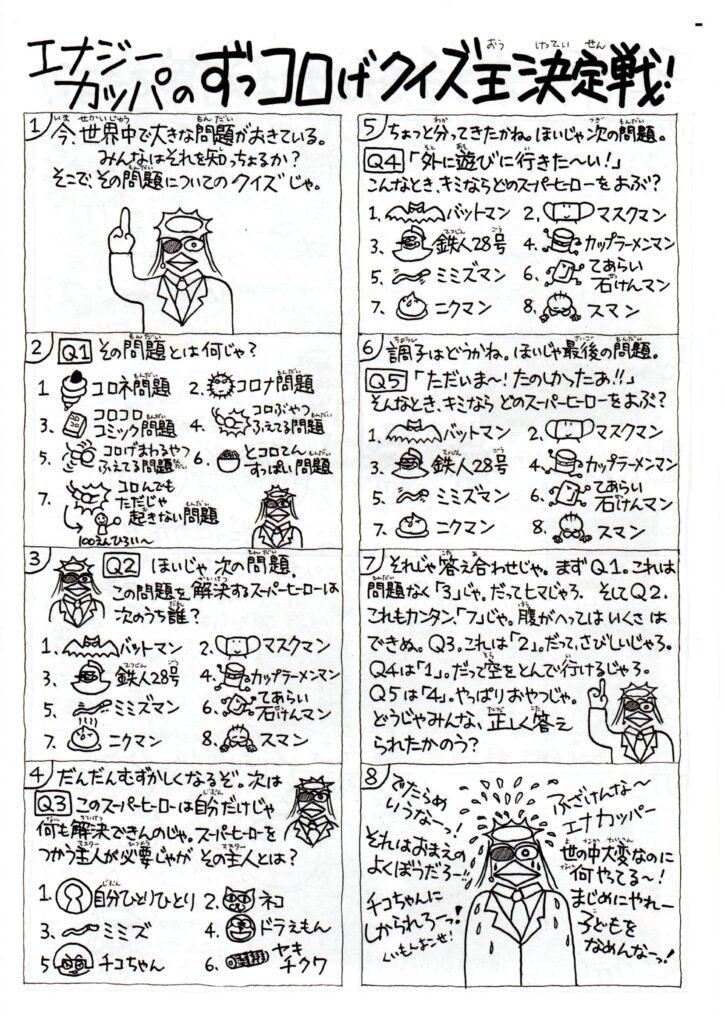 エナジー
カッパの ずっコロげクイズ王決定戦!
1 今、世界中で大きな問題がおきている。
みんなはそれを知っちょるか?
そこで、その問題についてのクイズじゃ。
2 Q1 その問題とは何じゃ?
1 コロネ問題 2. コロナ問題
3. コロコロコミック問題 4. コロぶやつふえてる問題
5. コロげまわるやつふえてる問題 6. とコロてんすっぱい問題
7. コロんでもただじゃ起きない問題
100えんひろい〜
3 Q2 ほいじゃ次の問題。
この問題を解決するスーパーヒーローは
次のうち誰?
1. バットマン 2. マスクマン
3. 鉄人28号 4. カップラーメンマン
5. ミミズマン 6. てあらい石けんマン
7. ニクマン 8. スマン
4 だんだんむずかしくなるぞ。次は
Q3 このスーパーヒーローは自分だけじゃ
何も解決できんのじゃ。スーパーヒーローを
つかう主人が必要じゃが その主人とは?
1. 自分ひとりひとり 2. ネコ
3. ミミズ 4. ドラえもん
5 チコちゃん 6. ヤキチクワ
5 ちょっと分ってきたかね。ほいじゃ次の問題。
Q4 「外に遊びに行きた〜い!」
こんなとき、キミならどのスーパーヒーローをよぶ?
1. バットマン 2. マスクマン
3. 鉄人28号 4. カップラーメンマン
5. ミミズマン 6. てあらい石けんマン
7. ニクマン 8. スマン
6 調子はどうかね。ほいじゃ最後の問題。
Q5 「ただいま〜!たのしかったぁ!!」
そんなとき、キミなら どのスーパーヒーローをよぶ?
1. バットマン 2. マスクマン
3. 鉄人28号 4. カップラーメンマン
5. ミミズマン 6. てあらい石けんマン
7. ニクマン 8. スマン
7 それじゃ答え合わせじゃ。まずQ1。これは
問題なく「3」じゃ。だってヒマじゃろ。 そしてQ2。
これもカンタン、「7」じゃ。腹がへってはいくさは
できぬ。Q3。これは「2」。だって、さびしいじゃろ。
Q4は「1」。だって空をとんで行けるじゃろ。
Q5は「4」。やっぱりおやつじゃ。
どうじゃみんな、正しく答え
られたかのう?
8 でたらめ
いうなーっ!
それはおまえの
よくぼうだろー!!
チコちゃんに
しかられろーっ!
ふざけんな〜
エナカッパー
世の中大変なのに
何やってる〜!
まじめにやれー
子どもを
なめんなーっ!